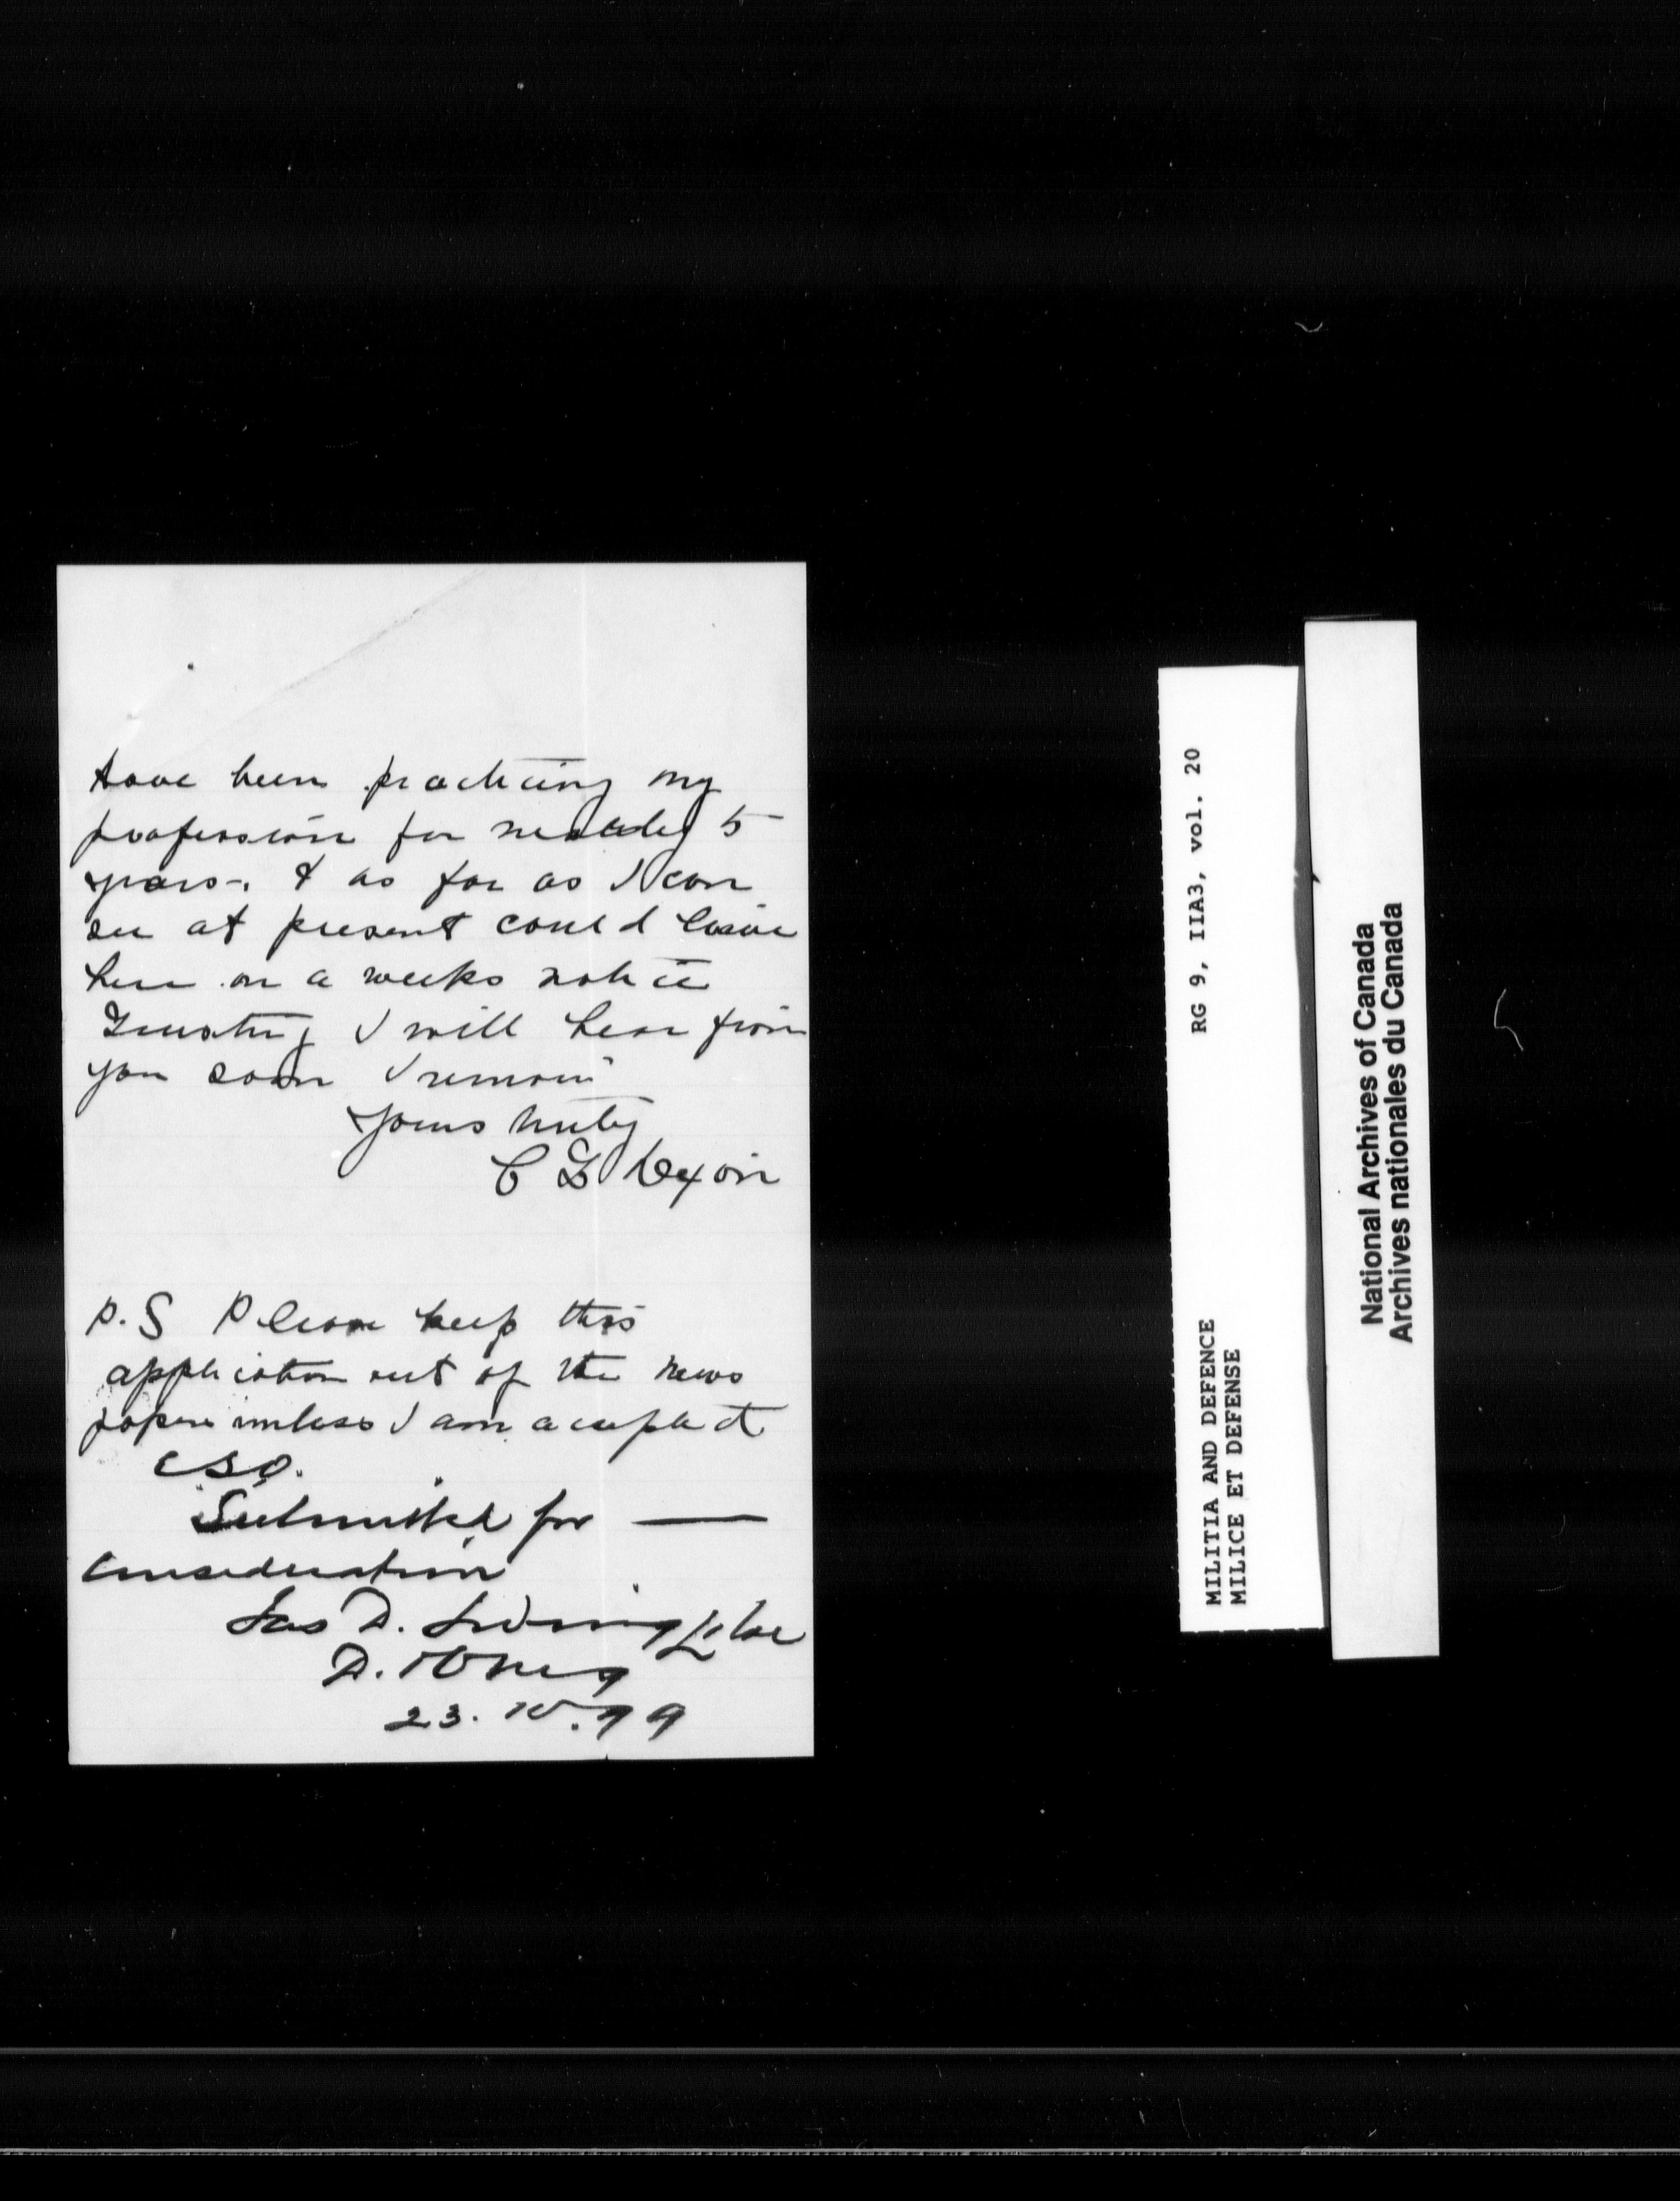 have been practicing my
profession for nearly 5
years. & as far as I can
see at present could leave
here on a weeks notice
Trusting I will hear from
you soon I remain
Yours truly
C G
P.S Please keep this
application out of the news
papers unless I am accepted
CSO.
Submitted for —
Consideration
Jas D. Irving Lt Col
D.
23. 10. 99
RG 9, IIA3, vol. 20
MILITIA AND DEFENCE
MILICE ET DEFENSE
National Archives of Canada
Archives nationales du Canada